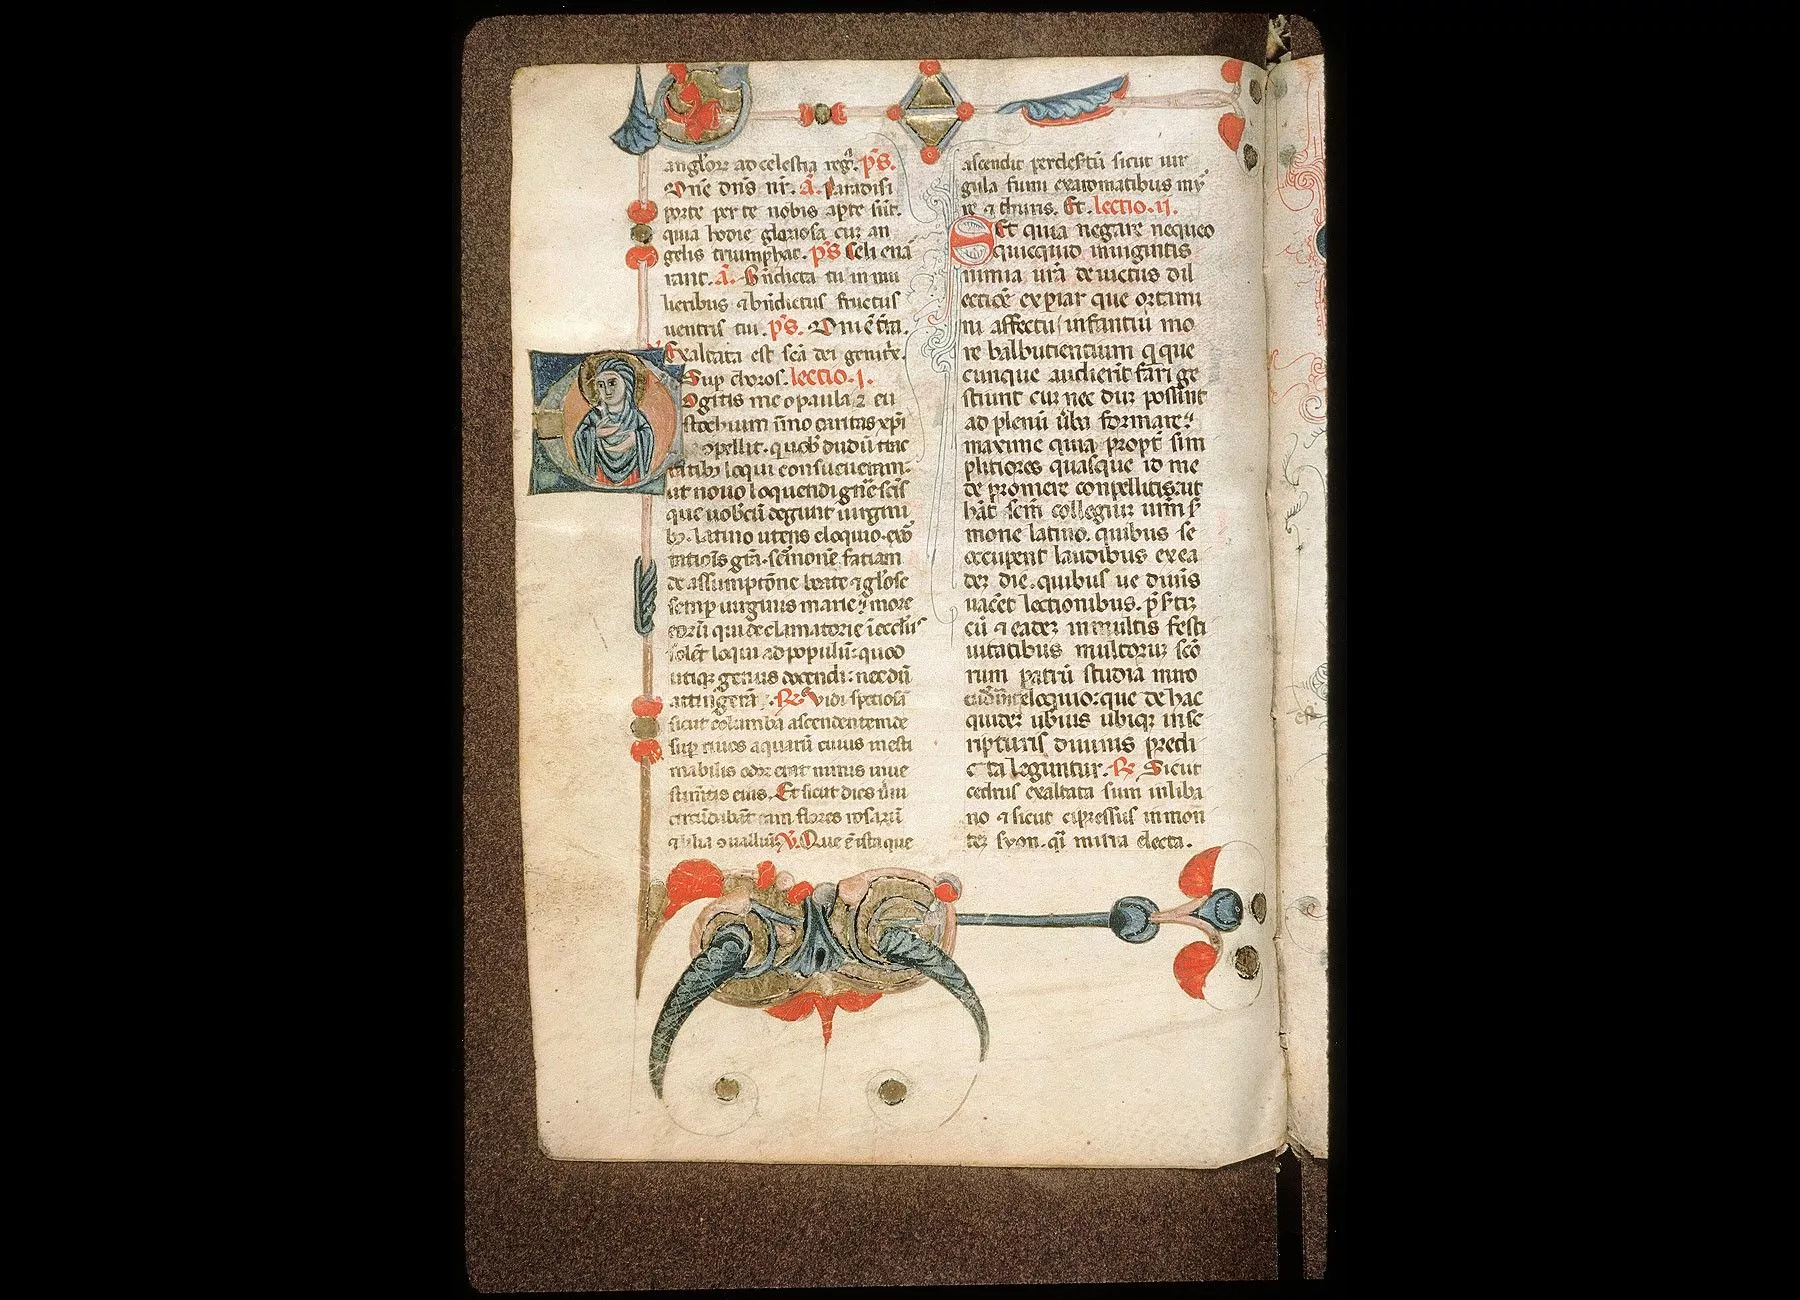 anglor̄ ad celestia reg̃. p̃s.
Dñe dñs nr̄. ã. Paradisi
porte per te nobis apte sūt.
quia hodie gloriosa cuȝ an
gelis triumphat. p̃s Celi enã
rant. ã. Bñdicta tu in mu
lieribus ⁊ bñdictus fructus
uentris tui. p̃s. Dñi ē t̃ra.
Exaltata est sc̄a dei genit̃x.
Sup̱ choros. lectio .i.
Cogitis me o paula ⁊ eu
stochium ūmo caritas xp̄i
ɔpellit. qui uob̄ dudū trac
tatibȝ loqui consueueram.
ut nouo loquendi gñe sc̄is
que uobcū degunt uirgini
bȝ. latino utens eloquio. exo
tationis gr̄a. sermonē fatiam
de assumptōne beate ⁊ gl̄ose
semp̱ uirginis marie. more
eorū qui declamatorie ī eccl̄iis
solēt loqui ad populū: quod
utiqȝ genus docendi: necdū
attingerā. R̷ Vidi spetiosā
sicut columbā ascendentem de
sup̱ riuos aquarū cuius inesti
mabilis odor erat nimis in ue
stimtis eius. Et sicut dies ūni
circūdabāt eam flores rosarū
⁊ lilia ɔualliū. V̷. Que ē ista que
ascendit per desertū sicut uir
gula fumi ex aromatibus my
re ⁊ thuris. Et. lectio .ii.
Set quia negare nequeo
quicquid iniungitis
nimia ur̄a deuictus dil
ectiōe expiar que ortami
ni affectu infantiū mo
re balbutientium q̱ que
cunque audierīt fari ge
stiunt cuȝ nec duȝ possint
ad plenū ūba formare.
maxime quia propt̄ sim
plitiores quasque id me
de promere conpellitis. ut
hāt sc̄m collegiuȝ ur̄m s̄
mone latino. quibus se
occupent laudibus ex ea
deȝ die. quibus ue diuis
uacēt lectionibus. p̃s̄tiȝ
cū ⁊ eadeȝ in multis festi
uitatibus multoruȝ sc̄o
rum patrū studia miro
eloquio: que de hac
quideȝ ubius ubiqȝ in sc
ripturis diuinis predi
cta leguntur. R̷ Sicut
cedrus exaltata sum in liba
no ⁊ sicut cipressus in mon
teȝ syon. q̄i mirra electa.